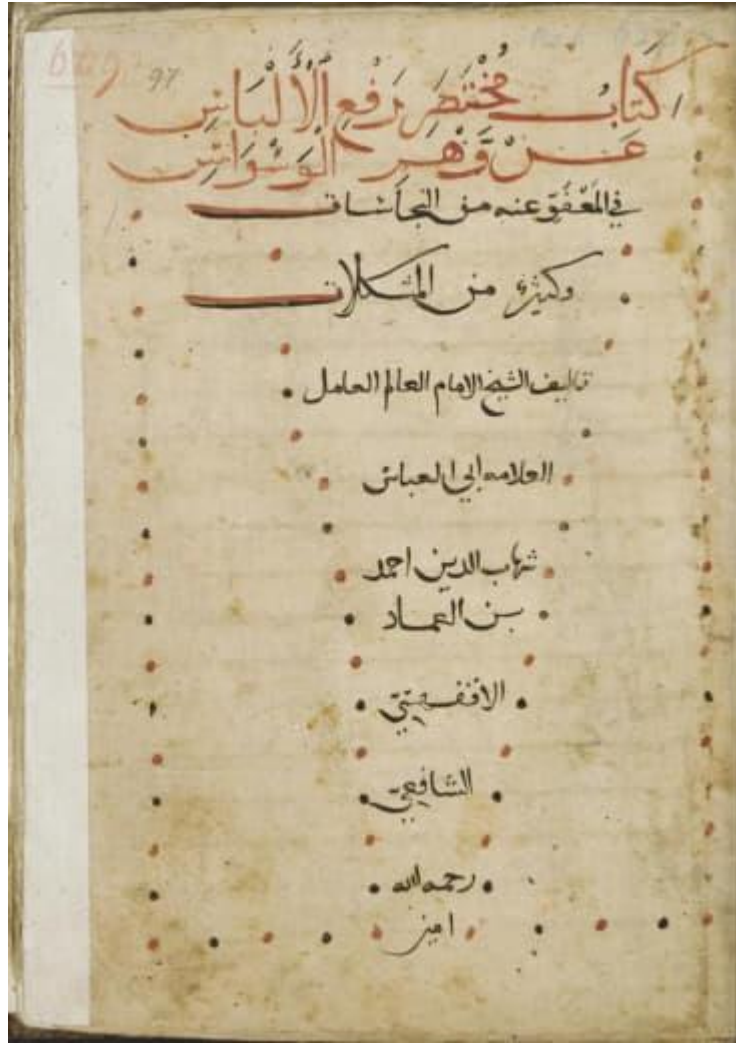 97
كتاب مختصر رفع الألباس
عن وهم الوسواس
في المعفو عنه من النجاسات
وكثير من المشكلات
تاليف الشيخ الامام العالم العامل
العلامه ابي العباس
شهاب الدين احمد
بن العماد
الاقفهسي
الشافعي
رحمه الله
امين